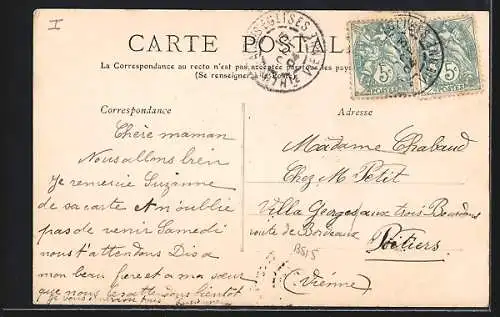 I
CARTE POSTALE
La Correspondance au recto n'est pas acceptée par tous les pays
(Se renseigner à la Poste)
Correspondance
Adresse
Chère maman
Nous allons bien
Je remercie Suzanne
de sa carte et n'oublie
pas de venir Samedi
nous t'attendons Dis a
mon beau frere et a ma sœur
que nous les attendons bientot
Madame Chabaud
Chez M Petit
Villa Georges aux trois Bourdons
route de Bordeaux
Poitiers
(Vienne)
5c
POSTES
5c
POSTES